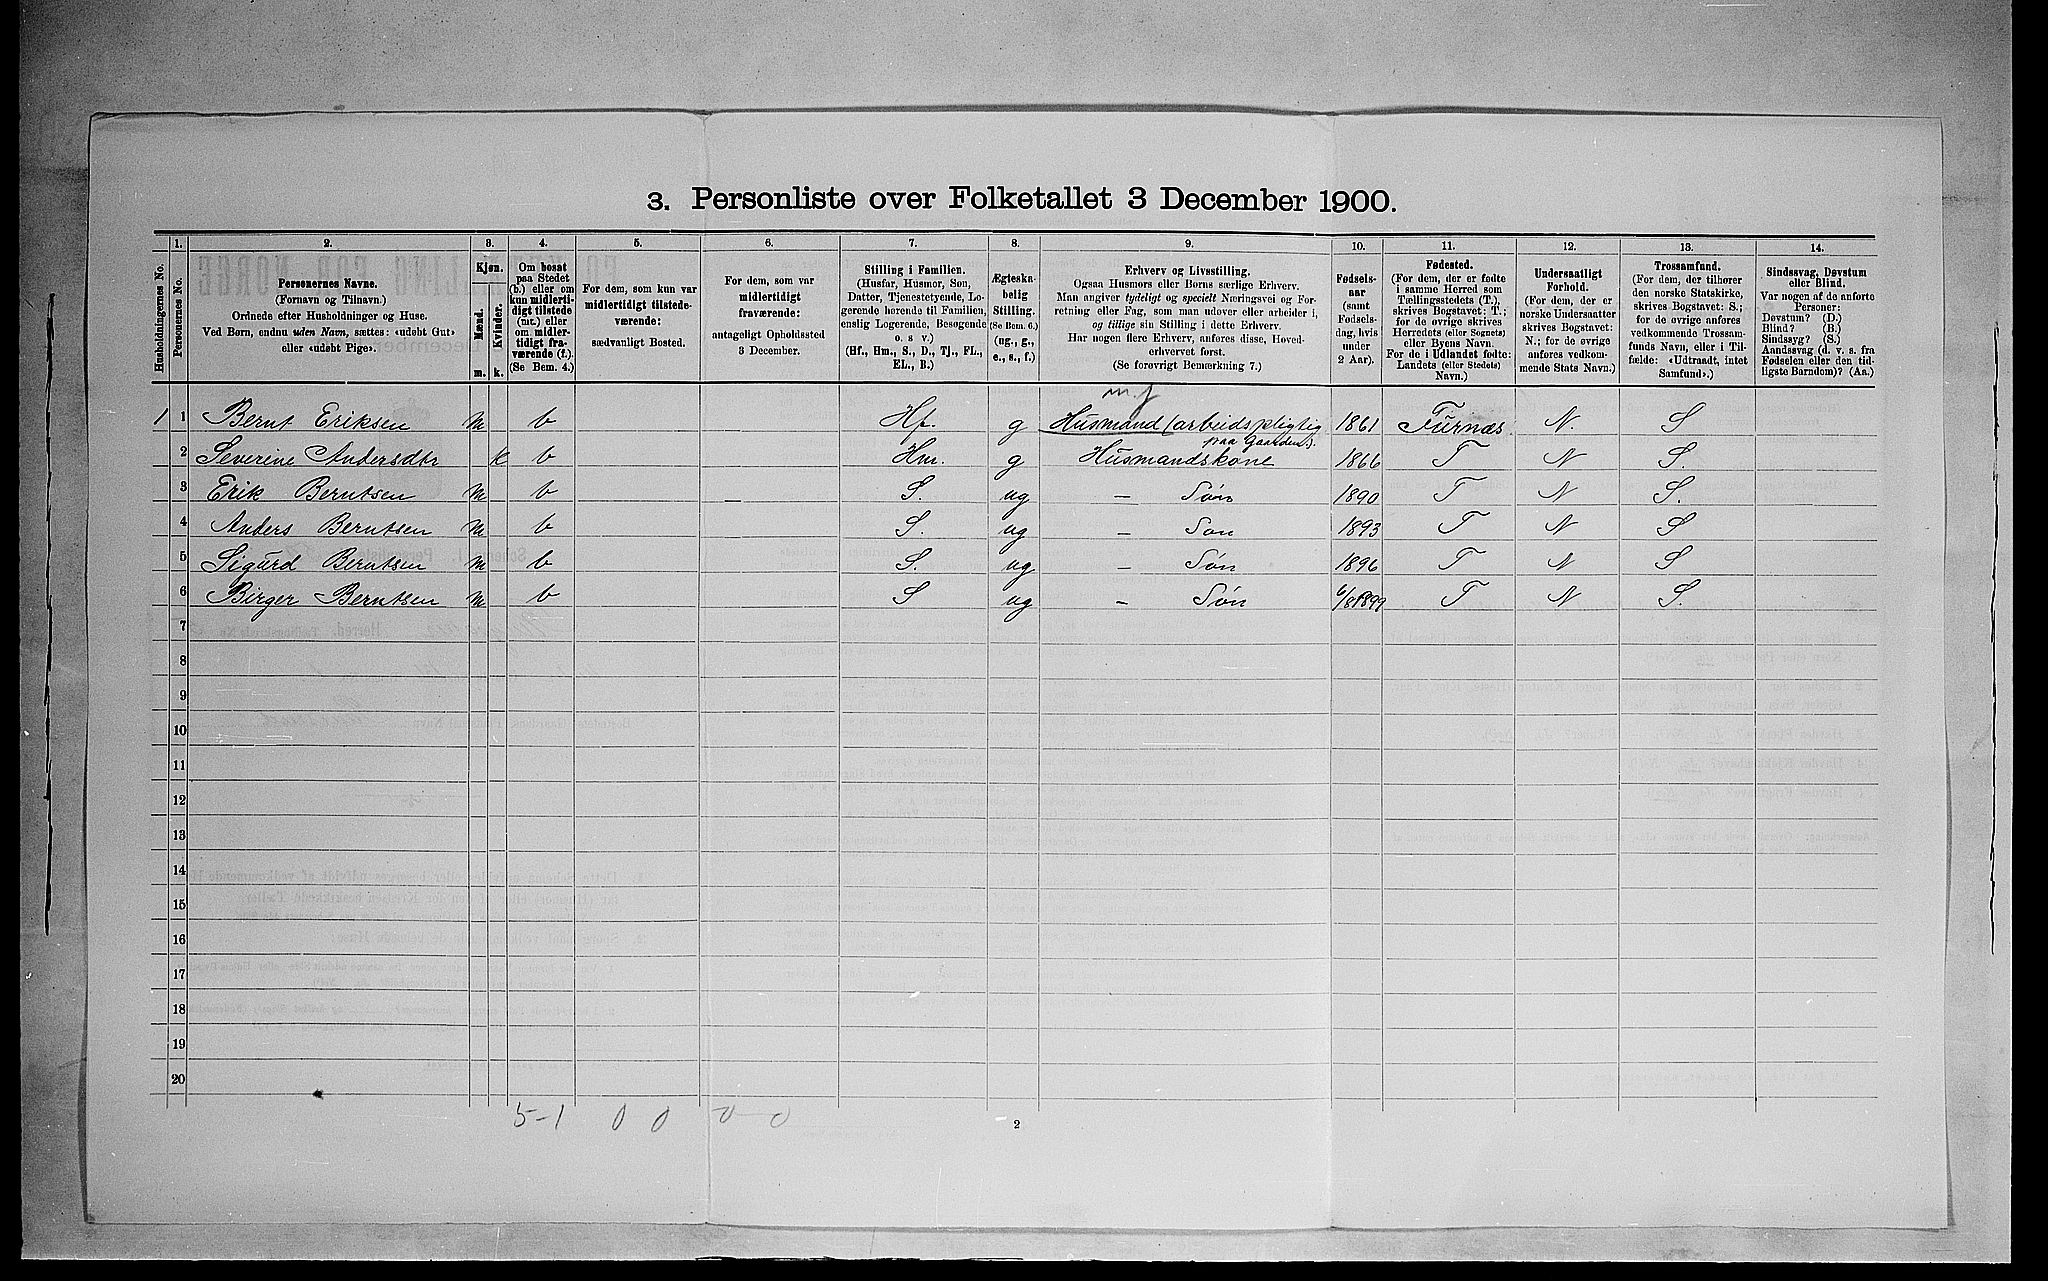 3. Personliste over Folketallet 3 December 1900.
Husholdningernes No.
1. Personernes No.
2. Personernes Navne.
(Fornavn og Tilnavn.)
Ordnede efter Husholdninger og Huse.
Ved Børn, endnu uden Navn, sættes: «udøbt Gut»
eller «udøbt Pige».
3. Kjøn.
Mænd. m.
Kvinder. k.
4. Om bosat
paa Stedet
(b.) eller om
kun midlerti-
digt tilstede
(mt.) eller
om midler-
tidigt fra-
værende (f.).
(Se Bem. 4.)
5. For dem, som kun var
midlertidigt tilstede-
værende:
sædvanligt Bosted.
6. For dem, som var
midlertidigt
fraværende:
antageligt Opholdssted
3 December.
7. Stilling i Familien.
(Husfar, Husmor, Søn,
Datter, Tjenestetyende, Lo-
gerende hørende til Familien,
enslig Logerende, Besøgende
o. s v.)
(Hf., Hm., S., D., Tj., FL.,
EL., B.)
8. Ægteska-
belig
Stilling.
(Se Bem. 6.)
(ug., g.,
e., s., f.)
9. Erhverv og Livsstilling.
Ogsaa Husmors eller Børns særlige Erhverv.
Man angiver tydeligt og specielt Næringsvei og For-
retning eller Fag, som man udøver eller arbeider i,
og tillige sin Stilling i dette Erhverv.
Har nogen flere Erhverv, anføres disse, Hoved-
erhvervet først.
(Se forøvrigt Bemærkning 7.)
10. Fødsels-
aar
(samt
Fødsels-
dag, hvis
under
2 Aar).
11. Fødested.
(For dem, der er fødte
i samme Herred som
Tællingsstedets (T.),
skrives Bogstavet: T.;
for de øvrige skrives
Herredets (eller Sognets)
eller Byens Navn.
For de i Udlandet fødte:
Landets (eller Stedets)
Navn.)
12. Undersaatligt
Forhold.
(For dem, der er
norske Undersaatter
skrives Bogstavet:
N.; for de øvrige
anføres vedkom-
mende Stats Navn.)
13. Trossamfund.
(For dem, der tilhører
den norske Statskirke,
skrives Bogstavet: S.;
for de øvrige anføres
vedkommende Trossam-
funds Navn, eller i Til-
fælde: «Udtraadt, intet
Samfund».)
14. Sindssvag, Døvstum
eller Blind.
Var nogen af de anførte
Personer:
Døvstum? (D.)
Blind? (B.)
Sindssyg? (S.)
Aandssvag (d. v. s. fra
Fødselen eller den tid-
ligste Barndom)? (Aa.)
m. j
1 1 Bernt Eriksen m b Hf. g Husmand (arbeidspligtig 1861 Furnæs. N. S
paa Gaarden.).
2 Severine Andersdtr k b Hm. g Husmandskone 1866 T N S.
3 Erik Berntsen m b S. ug – Søn 1890 T N S.
4 Anders Berntsen m b S. ug – Søn 1893 T N S
5 Sigurd Berntsen m b S. ug – Søn 1896 T N S
6 Birger Berntsen m b S ug – Søn 6/8 1899 T N S.
7
8
9
10
11
12
13
14
15
16
17
18
19
20
5-1 0 0 0-0
2